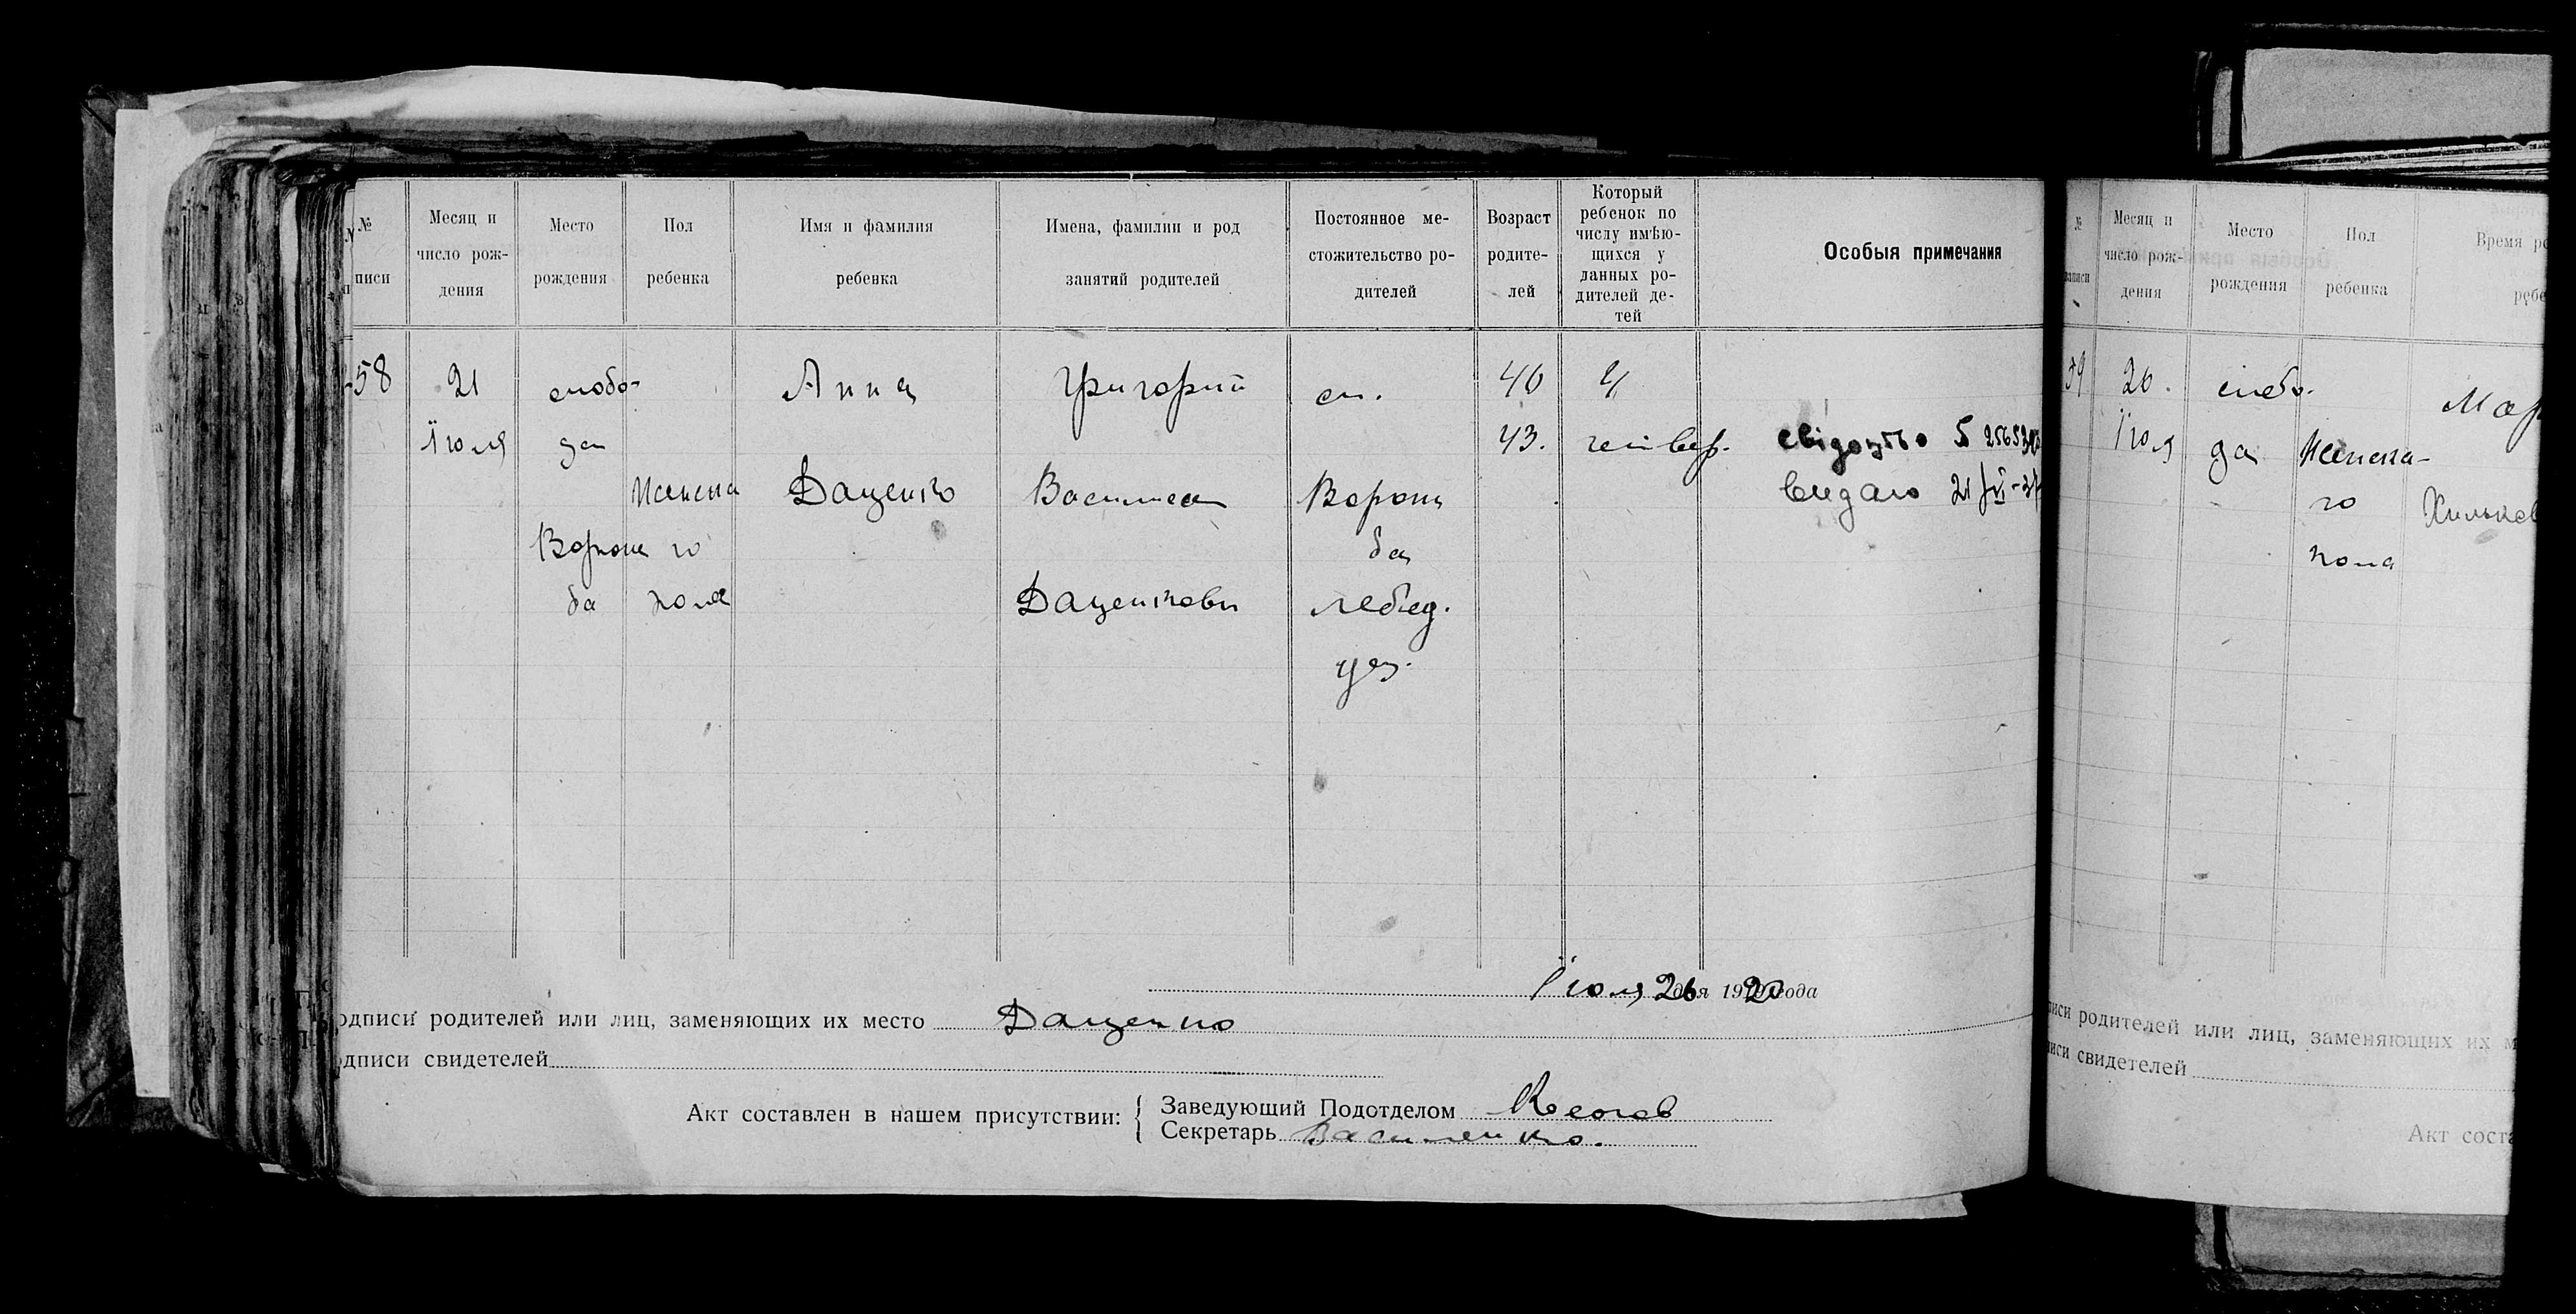 №
писи
Месяц и
число рож-
дения
Место
рождения
Пол
ребенка
Имя и фамилия
ребенка
Имена, фамилии и род
занятий родителей
Постоянное ме-
стожительство ро-
дителей
Возраст
родите-
лей
Который
ребенок по
числу имѣю-
щихся у
данных ро-
дителей де-
тей
Особыя примечания
58
21
Іюля
слобо-
да
Ворож
ба
Женска
го
пола
Анна
Даценко
Григорий
Василиса
Даценковы
сл.
Ворож
ба
Лебед.
уез.
40
43.
4
четвер.
свідоцтво
видано 21/VI-37
Іюля 26 дня 1920 года
одписи родителей или лиц, заменяющих их место Даценко
одписи свидетелей
Акт составлен в нашем присутствии:
Заведующий Подотделом
Секретарь Василенко.
№
записи
Месяц и
число рож-
дения
Место
рождения
Пол
ребенка
Время р
ребе
59
26.
Іюля
слобо-
да
Женска-
го
пола
Мар
Хильков
писи родителей или лиц, заменяющих их м
писи свидетелей
Акт соста